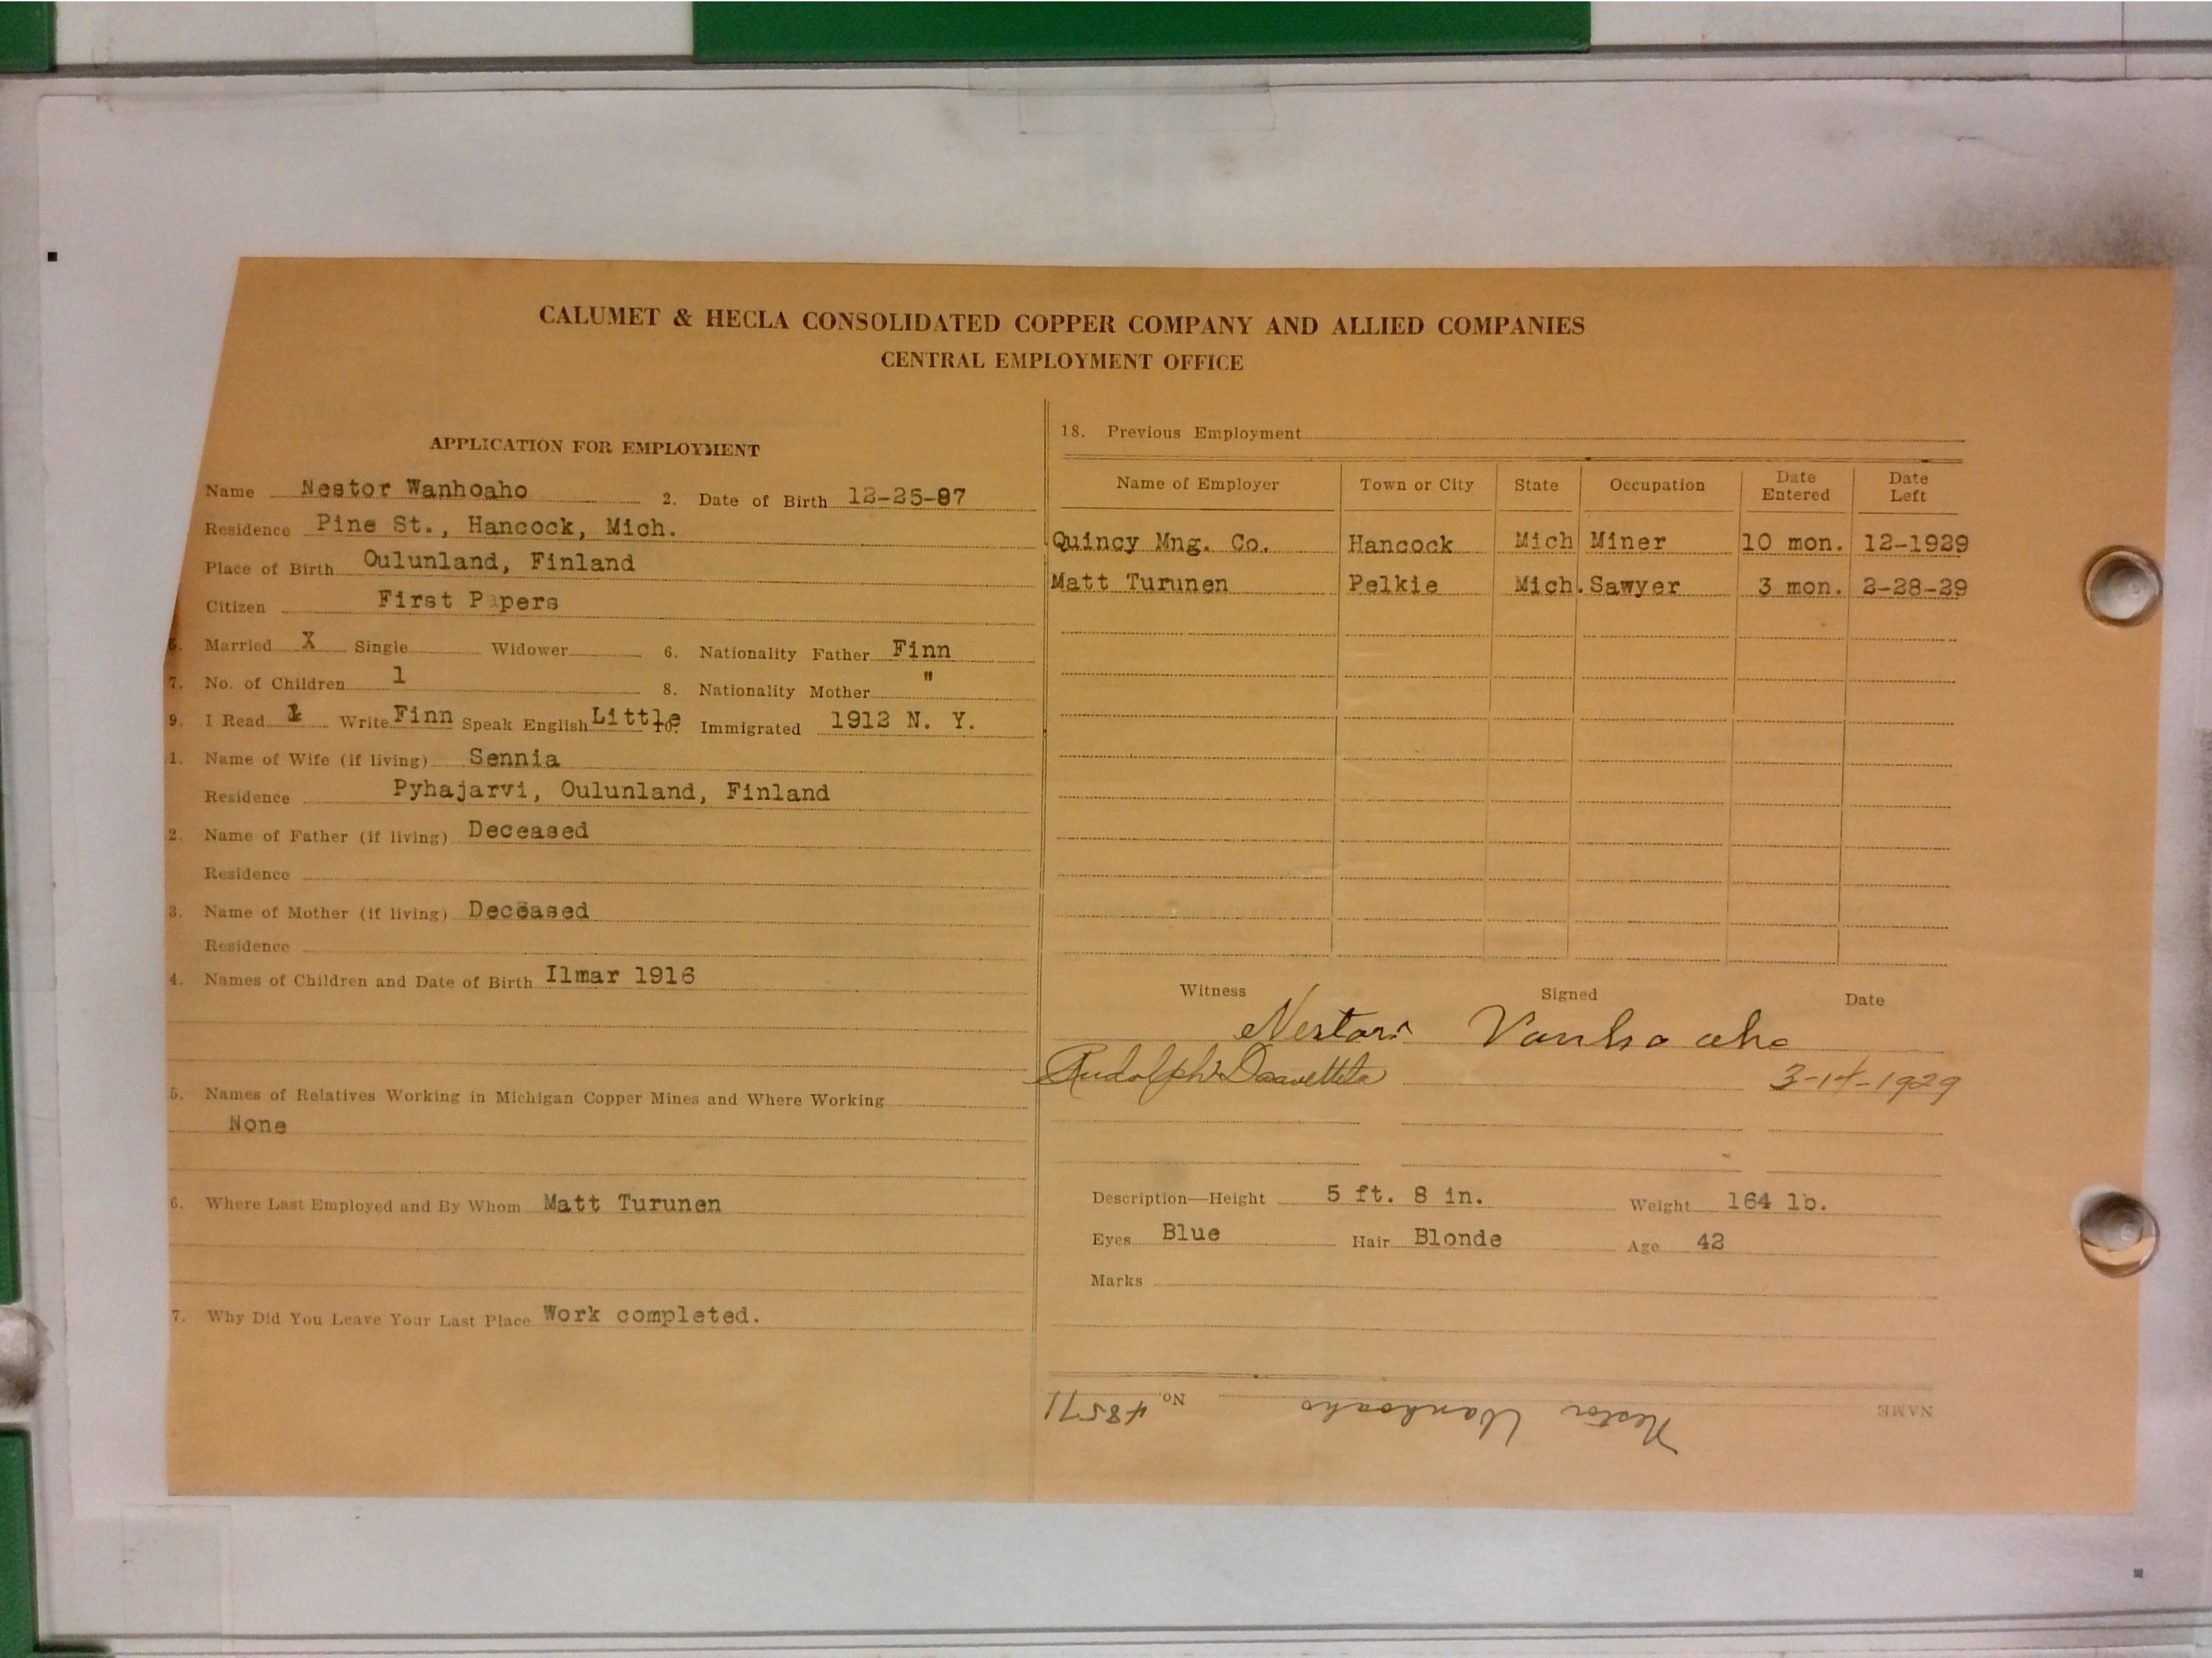 CALUMET & HECLA CONSOLIDATED COPPER COMPANY AND ALLIED COMPANIES
CENTRAL EMPLOYMENT OFFICE
APPLICATION FOR EMPLOYMENT
Name Nestor Wanhoaho 2. Date of Birth 12-25-87
Residence Pine St., Hancock, Mich.
Place of Birth Oulunland, Finland
Citizen First Papers
5. Married X Single Widower 6. Nationality Father Finn
7. No. of Children 1 8. Nationality Mother "
9. I Read Write Finn Speak English Little 10. Immigrated 1912 N. Y.
1. Name of Wife (if living) Sennia
Residence Pyhajarvi, Oulunland, Finland
2. Name of Father (if living) Deceased
Residence
3. Name of Mother (if living) Deceased
Residence
4. Names of Children and Date of Birth Ilmar 1916
5. Names of Relatives Working in Michigan Copper Mines and Where Working
None
6. Where Last Employed and By Whom Matt Turunen
7. Why Did You Leave Your Last Place Work completed.
18. Previous Employment
Name of Employer Town or City State Occupation Date Entered Date Left
Quincy Mng. Co. Hancock Mich Miner 10 mon. 12-1929
Matt Turunen Pelkie Mich. Sawyer 3 mon. 2-28-29
Witness Signed Date
Nestori Vanhoaho
Rudolph 3-14-1929
Description—Height 5 ft. 8 in. Weight 164 lb.
Eyes Blue Hair Blonde Age 42
Marks
NAME Nestor Wanhoaho No. 48571